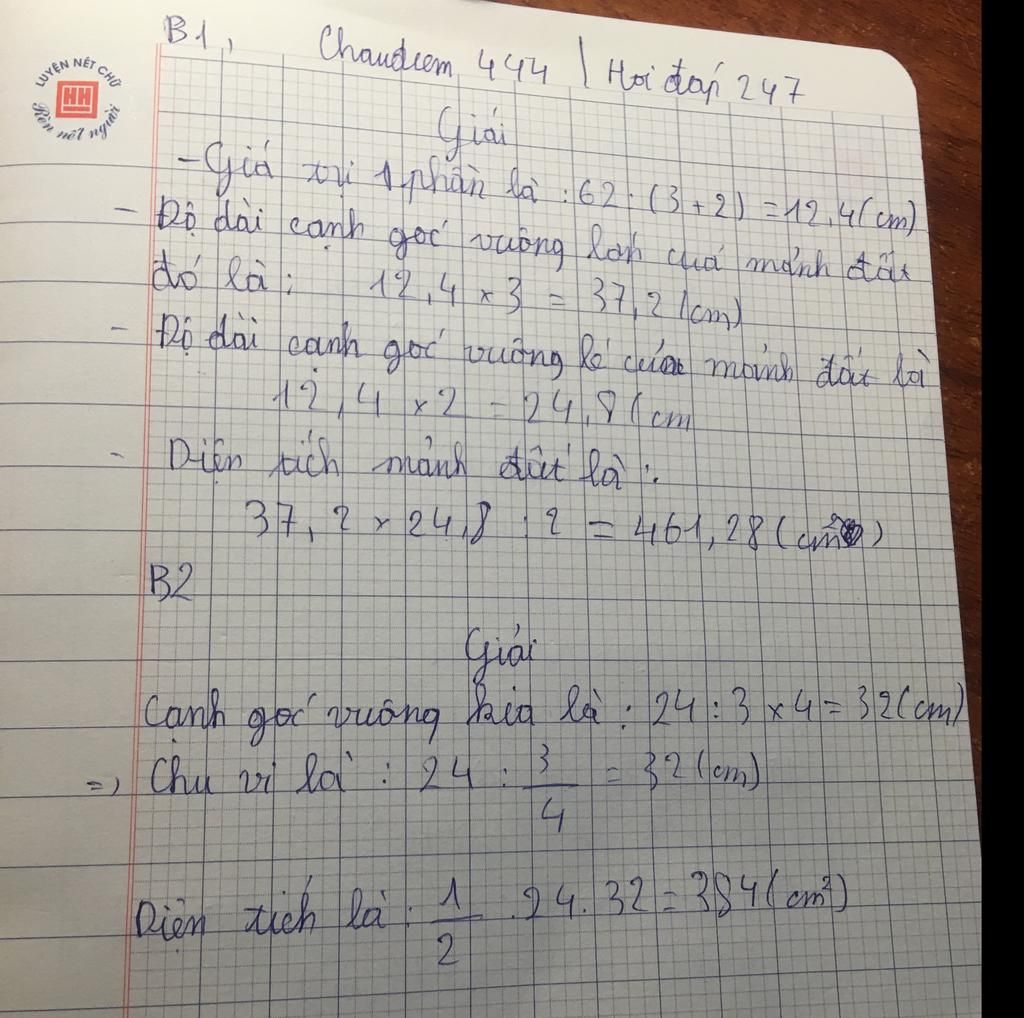 LUYỆN NẾT CHỮ
HH
Rèn nết người
B1, Chaudiem 444 | Hoi đáp 247
Giải
- Giá trị 1 phần là : 62 : (3 + 2) = 12,4 (cm)
- Độ dài cạnh góc vuông lớn của mảnh đất
đó là : 12,4 × 3 = 37,2 (cm)
- Độ dài cạnh góc vuông bé của mảnh đất là
12,4 × 2 = 24,8 (cm
- Diện tích mảnh đất là :
37,2 × 24,8 : 2 = 461,28 (cm²)
B2
Giải
Cạnh góc vuông kia là : 24 : 3 × 4 = 32 (cm)
=) Chu vi là : 24 : 3/4 = 32 (cm)
Diện tích là : 1/2 . 24 . 32 = 384 (cm²)